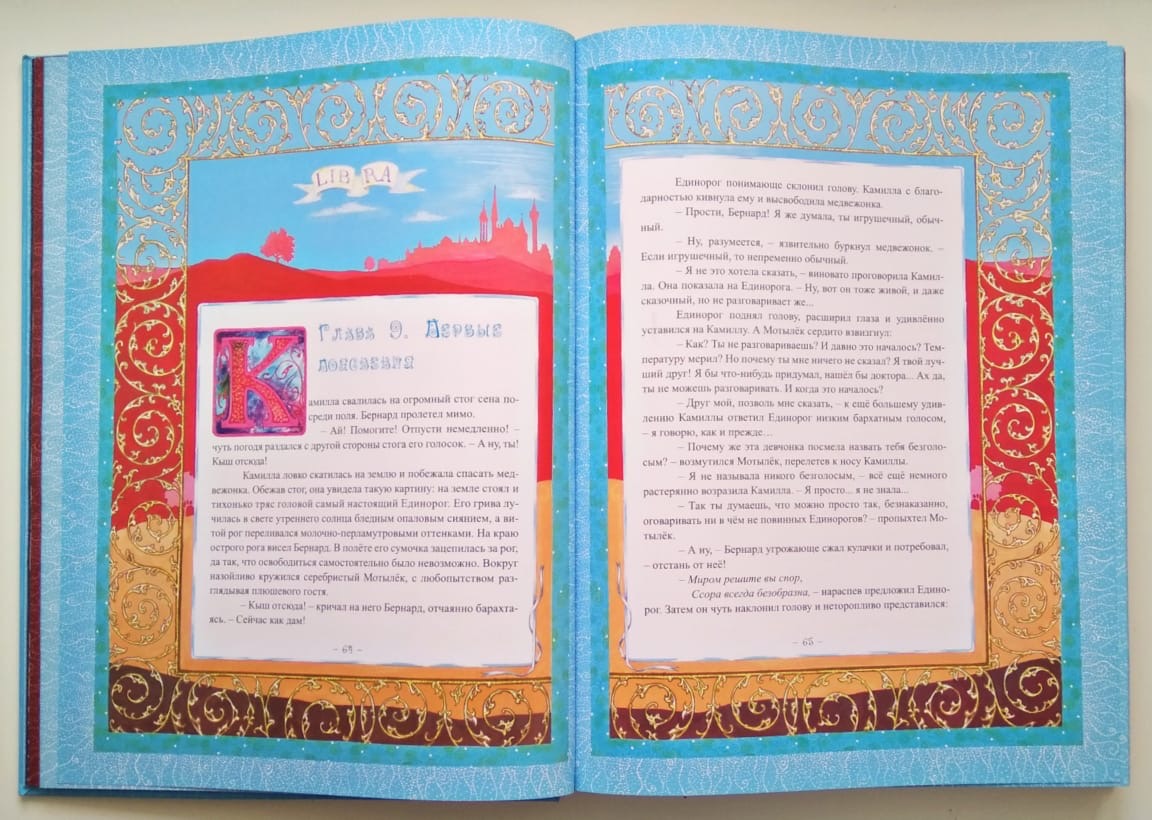 LIBRA
Глава 9. Первые
К
амилла свалилась на огромный стог сена по-
среди поля. Бернард пролетел мимо.
– Ай! Помогите! Отпусти немедленно! –
чуть погодя раздался с другой стороны стога его голосок. – А ну, ты!
Кыш отсюда!
Камилла ловко скатилась на землю и побежала спасать мед-
вежонка. Обежав стог, она увидела такую картину: на земле стоял и
тихонько тряс головой самый настоящий Единорог. Его грива лу-
чилась в свете утреннего солнца бледным опаловым сиянием, а ви-
той рог переливался молочно-перламутровыми оттенками. На краю
острого рога висел Бернард. В полёте его сумочка зацепилась за рог,
да так, что освободиться самостоятельно было невозможно. Вокруг
назойливо кружился серебристый Мотылёк, с любопытством раз-
глядывая плюшевого гостя.
– Кыш отсюда! – кричал на него Бернард, отчаянно барахта-
ясь. – Сейчас как дам!
– 64 –
Единорог понимающе склонил голову. Камилла с благо-
дарностью кивнула ему и высвободила медвежонка.
– Прости, Бернард! Я же думала, ты игрушечный, обыч-
ный.
– Ну, разумеется, – язвительно буркнул медвежонок. –
Если игрушечный, то непременно обычный.
– Я не это хотела сказать, – виновато проговорила Камил-
ла. Она показала на Единорога. – Ну, вот он тоже живой, и даже
сказочный, но не разговаривает же...
Единорог поднял голову, расширил глаза и удивлённо
уставился на Камиллу. А Мотылёк сердито взвизгнул:
– Как? Ты не разговариваешь? И давно это началось? Тем-
пературу мерил? Но почему ты мне ничего не сказал? Я твой луч-
ший друг! Я бы что-нибудь придумал, нашёл бы доктора... Ах да,
ты не можешь разговаривать. И когда это началось?
– Друг мой, позволь мне сказать, – к ещё большему удив-
лению Камиллы ответил Единорог низким бархатным голосом,
– я говорю, как и прежде…
– Почему же эта девчонка посмела назвать тебя безголо-
сым? – возмутился Мотылёк, перелетев к носу Камиллы.
– Я не называла никого безголосым, – всё ещё немного
растерянно возразила Камилла. – Я просто... я не знала...
– Так ты думаешь, что можно просто так, безнаказанно,
оговаривать ни в чём не повинных Единорогов? – пропыхтел Мо-
тылёк.
– А ну, – Бернард угрожающе сжал кулачки и потребовал,
– отстань от неё!
– Миром решите вы спор,
Ссора всегда безобразна, – нараспев предложил Едино-
рог. Затем он чуть наклонил голову и неторопливо представился:
– 65 –